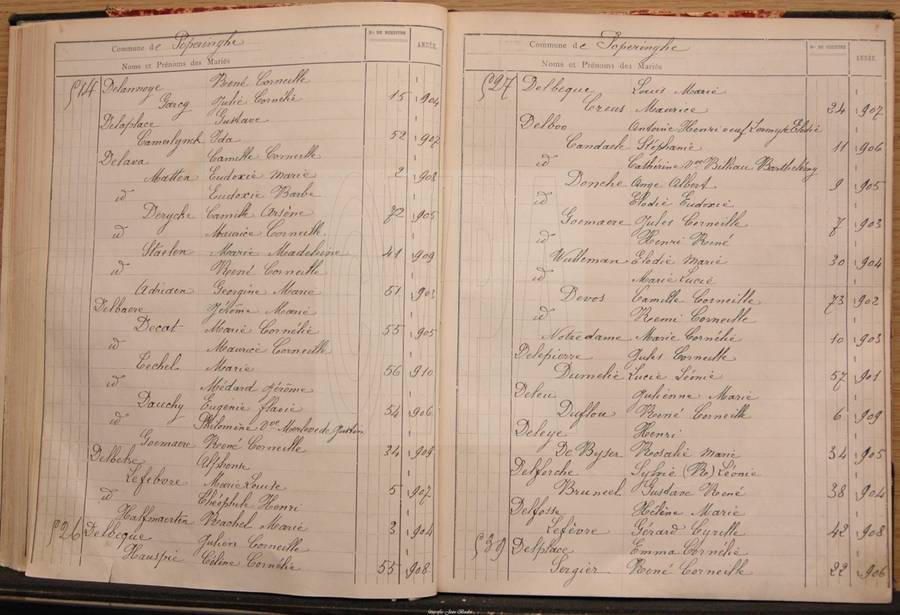 Commune de Poperinghe
Nos DE REGISTRE
ANNÉE
Noms et Prénoms des Mariés
§14 Delannoye René Corneille
Garcy Julie Cornélie 15 1904
Delaplace Gustave
Camerlynck Ida 52 1907
Delava Camille Corneille
Matten Eudoxie Marie 2 1908
id Eudoxie Barbe
Derycke Camille Arsène 72 1905
id Maurice Corneille
Staelen Marie Madeleine 41 1909
id René Corneille
Adriaen Georgine Marie 51 1903
Delbaere Jérôme Marie
Decat Marie Cornélie 55 1905
id Maurice Corneille
Marie 56 1910
id Médard Jérôme
Dauchy Eugénie Flavie 54 1906
id Philomène Vve
Goemaere René Corneille 34 1909
Delbeke Alphonse
Lefebvre Marie Louise 5 1907
id Théophile Henri
Halfmaerten Rachel Marie 3 1904
§26 Delbeque Julien Corneille
Hauspie Céline Cornélie 55 1908
Commune de Poperinghe
Nos DE REGISTRE
ANNÉE
Noms et Prénoms des Mariés
§27 Delbeque Louis Marie
Creus Maurice 24 1907
Delboo Antoine Henri veuf Elodie
Candaele Stéphanie 11 1906
id Cathérine Vve Billiau Barthélémy
Donche Ange Albert 9 1905
id Elodie Eudoxie
Goemaere Jules Corneille 7 1903
id Henri René
Wulleman Elodie Marie 30 1904
id Marie Lucie
Devos Camille Corneille 73 1902
id Remi Corneille
Notredame Marie Cornélie 10 1903
Delepierre Jules Corneille
Dumelie Lucie Léonie 57 1901
Deleu Julienne Marie
Duflou René Corneille 6 1909
Deleye Henri
De Byser Rosalie Marie 34 1905
Delferche Sylvie (Ro) Léonie
Bruneel Gustave René 38 1904
Delfosse Hélène Marie
Lefèvre Gérard Cyrille 42 1908
§39 Delplace Emma Cornélie
Sergier René Corneille 22 1906